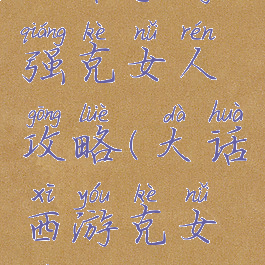 qiáng kè nǚ rén
强克女人
gōng lüè dà huà
攻略(大话
xī yóu kè nǚ
西游克女